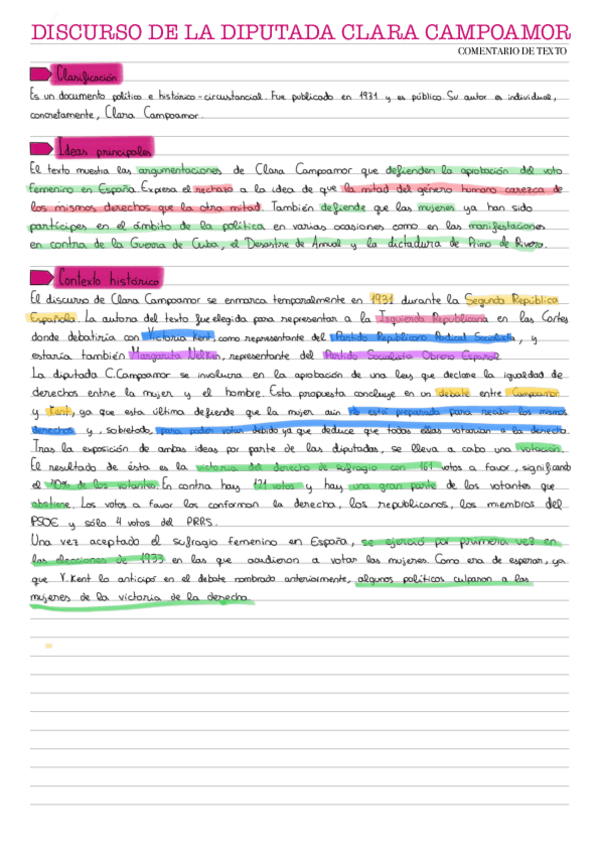 DISCURSO DE LA DIPUTADA CLARA CAMPOAMOR
COMENTARIO DE TEXTO
Clasificación
Es un documento político e histórico-circunstancial. Fue publicado en 1931 y es público. Su autor es individual,
concretamente, Clara Campoamor.
Ideas principales
El texto muestra las argumentaciones de Clara Campoamor que defienden la aprobación del voto
femenino en España. Expresa el rechazo a la idea de que la mitad del género humano carezca de
los mismos derechos que la otra mitad. También defiende que las mujeres ya han sido
partícipes en el ámbito de la política en varias ocasiones como en las manifestaciones
en contra de la Guerra de Cuba, el Desastre de Annual y la dictadura de Primo de Rivera.
Contexto histórico
El discurso de Clara Campoamor se enmarca temporalmente en 1931 durante la Segunda República
Española. La autora del texto fue elegida para representar a la Izquierda Republicana en las Cortes
donde debatiría con Victoria Kent, como representante del Partido Republicano Radical Socialista, y
estaría también Margarita Nelken, representante del Partido Socialista Obrero Español.
La diputada C.Campoamor se involucra en la aprobación de una ley que declare la igualdad de
derechos entre la mujer y el hombre. Esta propuesta concluye en un debate entre Campoamor
y Kent, ya que esta última defiende que la mujer aún no está preparada para recibir los mismos
derechos y, sobretodo, para poder votar debido ya que deduce que todas ellas votarían a la derecha.
Tras la exposición de ambas ideas por parte de las diputadas, se lleva a cabo una votación.
El resultado de ésta es la victoria del derecho de sufragio con 161 votos a favor, significando
el 40% de los votantes. En contra hay 121 votos y hay una gran parte de los votantes que
abstiene. Los votos a favor los conforman la derecha, los republicanos, los miembros del
PSOE y sólo 4 votos del PRRS.
Una vez aceptado el sufragio femenino en España, se ejerció por primera vez en
las elecciones de 1933 en las que acudieron a votar las mujeres. Como era de esperar, ya
que V.Kent lo anticipó en el debate nombrado anteriormente, algunos políticos culparon a las
mujeres de la victoria de la derecha.